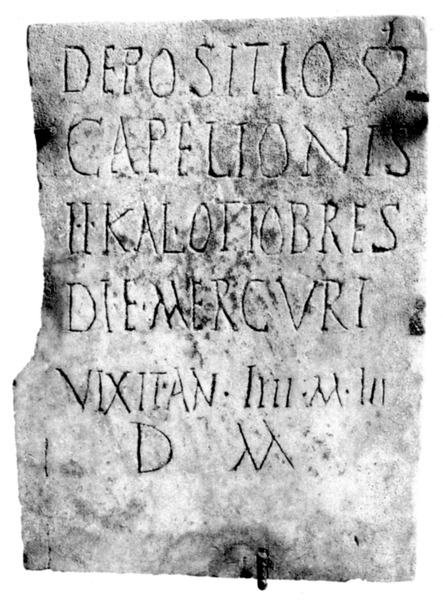 DEPOSITIO ❦
CAPELIONIS
II·KAL·OTTOBRES
DI·E·MERCVRI
VIXIT·AN·IIII·M·III
D M